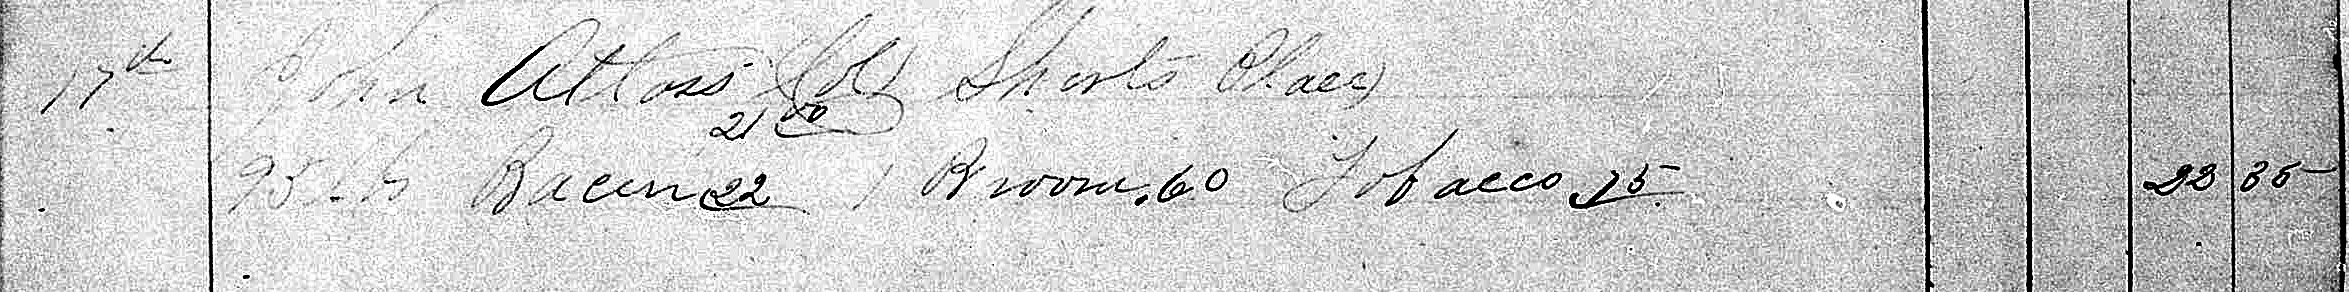 17th John Attoss (Col Shorts Place)
21 00
95 lbs Bacon 22 1 Broom .60 Tobacco .75 22 35